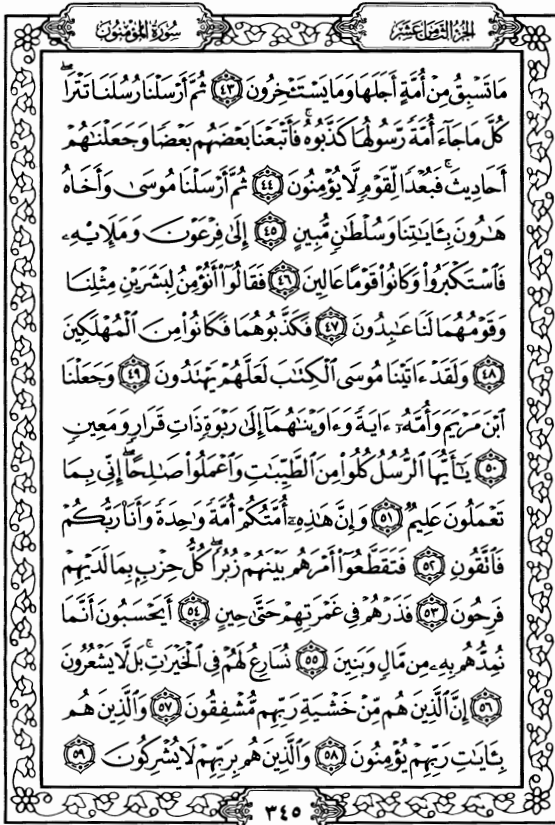 سُورَةُ المُؤْمِنُونَ
الجُزْءُ الثَّامِنَ عَشَرَ
مَا تَسْبِقُ مِنْ أُمَّةٍ أَجَلَهَا وَمَا يَسْتَـْٔخِرُونَ ٤٣ ثُمَّ أَرْسَلْنَا رُسُلَنَا تَتْرَاۖ
كُلَّ مَا جَآءَ أُمَّةً رَّسُولُهَا كَذَّبُوهُۚ فَأَتْبَعْنَا بَعْضَهُم بَعْضًا وَجَعَلْنَٰهُمْ
أَحَادِيثَۚ فَبُعْدًا لِّقَوْمٍ لَّا يُؤْمِنُونَ ٤٤ ثُمَّ أَرْسَلْنَا مُوسَىٰ وَأَخَاهُ
هَٰرُونَ بِـَٔايَٰتِنَا وَسُلْطَٰنٍ مُّبِينٍ ٤٥ إِلَىٰ فِرْعَوْنَ وَمَلَإِي۟هِۦ
فَٱسْتَكْبَرُوا۟ وَكَانُوا۟ قَوْمًا عَالِينَ ٤٦ فَقَالُوٓا۟ أَنُؤْمِنُ لِبَشَرَيْنِ مِثْلِنَا
وَقَوْمُهُمَا لَنَا عَٰبِدُونَ ٤٧ فَكَذَّبُوهُمَا فَكَانُوا۟ مِنَ ٱلْمُهْلَكِينَ
٤٨ وَلَقَدْ ءَاتَيْنَا مُوسَى ٱلْكِتَٰبَ لَعَلَّهُمْ يَهْتَدُونَ ٤٩ وَجَعَلْنَا
ٱبْنَ مَرْيَمَ وَأُمَّهُۥٓ ءَايَةً وَءَاوَيْنَٰهُمَآ إِلَىٰ رَبْوَةٍ ذَاتِ قَرَارٍ وَمَعِينٍ
٥٠ يَٰٓأَيُّهَا ٱلرُّسُلُ كُلُوا۟ مِنَ ٱلطَّيِّبَٰتِ وَٱعْمَلُوا۟ صَٰلِحًاۖ إِنِّى بِمَا
تَعْمَلُونَ عَلِيمٌ ٥١ وَإِنَّ هَٰذِهِۦٓ أُمَّتُكُمْ أُمَّةً وَٰحِدَةً وَأَنَا۠ رَبُّكُمْ
فَٱتَّقُونِ ٥٢ فَتَقَطَّعُوٓا۟ أَمْرَهُم بَيْنَهُمْ زُبُرًاۖ كُلُّ حِزْبٍۭ بِمَا لَدَيْهِمْ
فَرِحُونَ ٥٣ فَذَرْهُمْ فِى غَمْرَتِهِمْ حَتَّىٰ حِينٍ ٥٤ أَيَحْسَبُونَ أَنَّمَا
نُمِدُّهُم بِهِۦ مِن مَّالٍ وَبَنِينَ ٥٥ نُسَارِعُ لَهُمْ فِى ٱلْخَيْرَٰتِۚ بَل لَّا يَشْعُرُونَ
٥٦ إِنَّ ٱلَّذِينَ هُم مِّنْ خَشْيَةِ رَبِّهِم مُّشْفِقُونَ ٥٧ وَٱلَّذِينَ هُم
بِـَٔايَٰتِ رَبِّهِمْ يُؤْمِنُونَ ٥٨ وَٱلَّذِينَ هُم بِرَبِّهِمْ لَا يُشْرِكُونَ ٥٩
٣٤٥